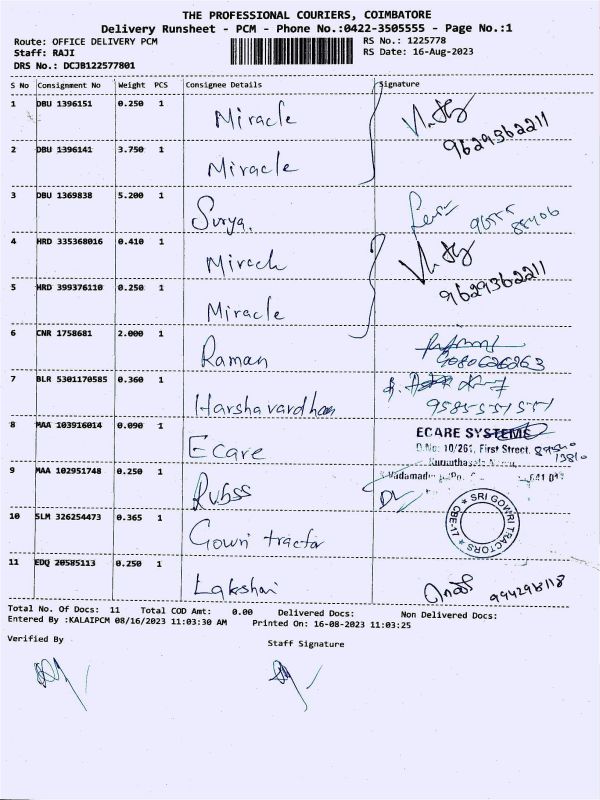 THE PROFESSIONAL COURIERS, COIMBATORE
Delivery Runsheet - PCM - Phone No.:0422-3505555 - Page No.:1
Route: OFFICE DELIVERY PCM
Staff: RAJI
DRS No.: DCJB122577801
RS No.: 1225778
RS Date: 16-Aug-2023
S No Consignment No Weight PCS Consignee Details Signature
1 DBU 1396151 0.250 1 Miracle
9629362211
2 DBU 1396141 3.750 1 Miracle
3 DBU 1369838 5.200 1 Surya.
4 HRD 335368016 0.410 1 Miracle
9629362211
5 HRD 399376110 0.250 1 Miracle
6 CNR 1758681 2.000 1 Raman
9080626263
7 BLR 5301170585 0.360 1 Harshavardhan
8 MAA 103916014 0.090 1 Ecare
ECARE SYSTEMS
D.No: 10/261, First Street.
9 MAA 102951748 0.250 1 Rubss
10 SLM 326254473 0.365 1 Gowri tractor
SRI GOWRI TRACTORS CBE-17
11 EDQ 20585113 0.250 1 Lakshai
Total No. Of Docs: 11 Total COD Amt: 0.00 Delivered Docs: Non Delivered Docs:
Entered By :KALAIPCM 08/16/2023 11:03:30 AM Printed On: 16-08-2023 11:03:25
Verified By
Staff Signature